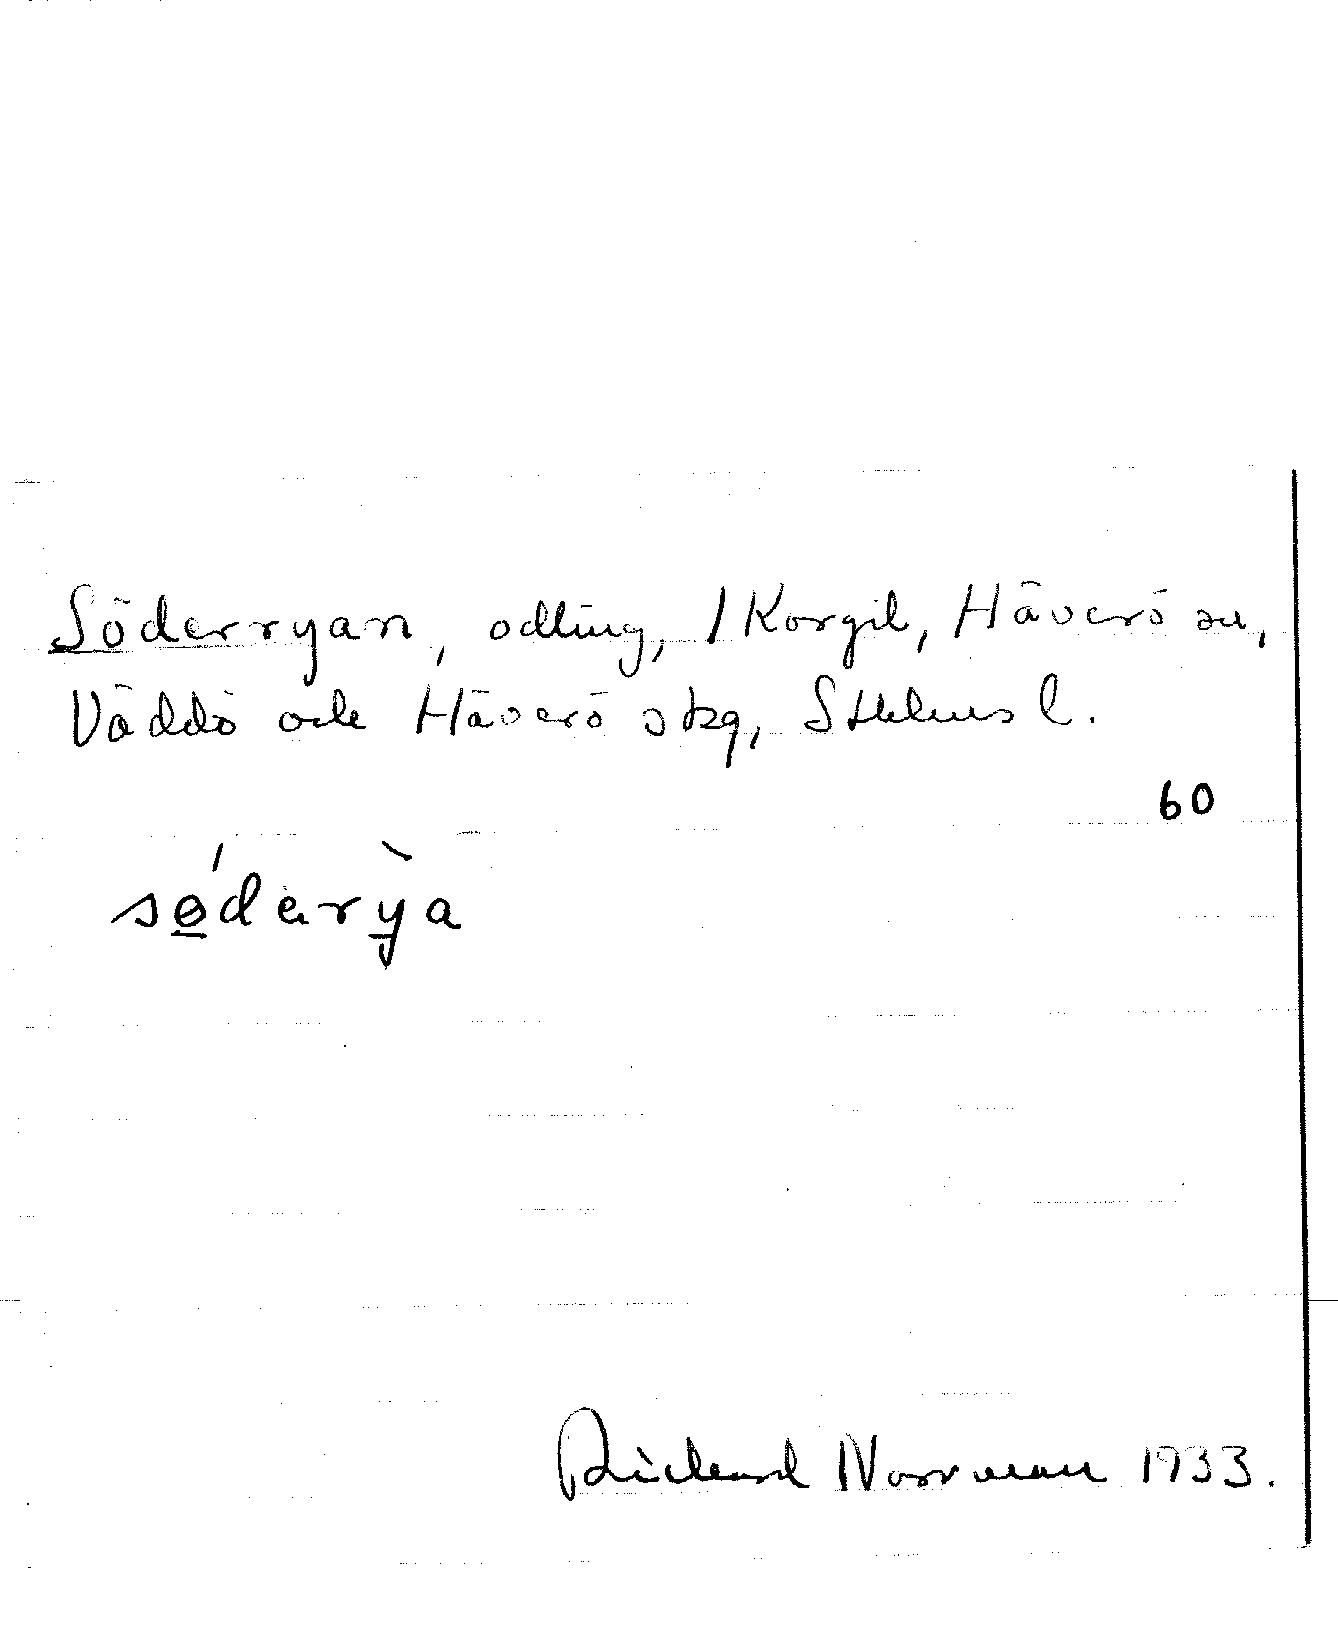 Söderryan, odling, 1 Korgil, Häverö sn,
Väddö och Häverö skg, Sthlms l.
60
sǿdèrỳa
Rickard Norrman 1933.